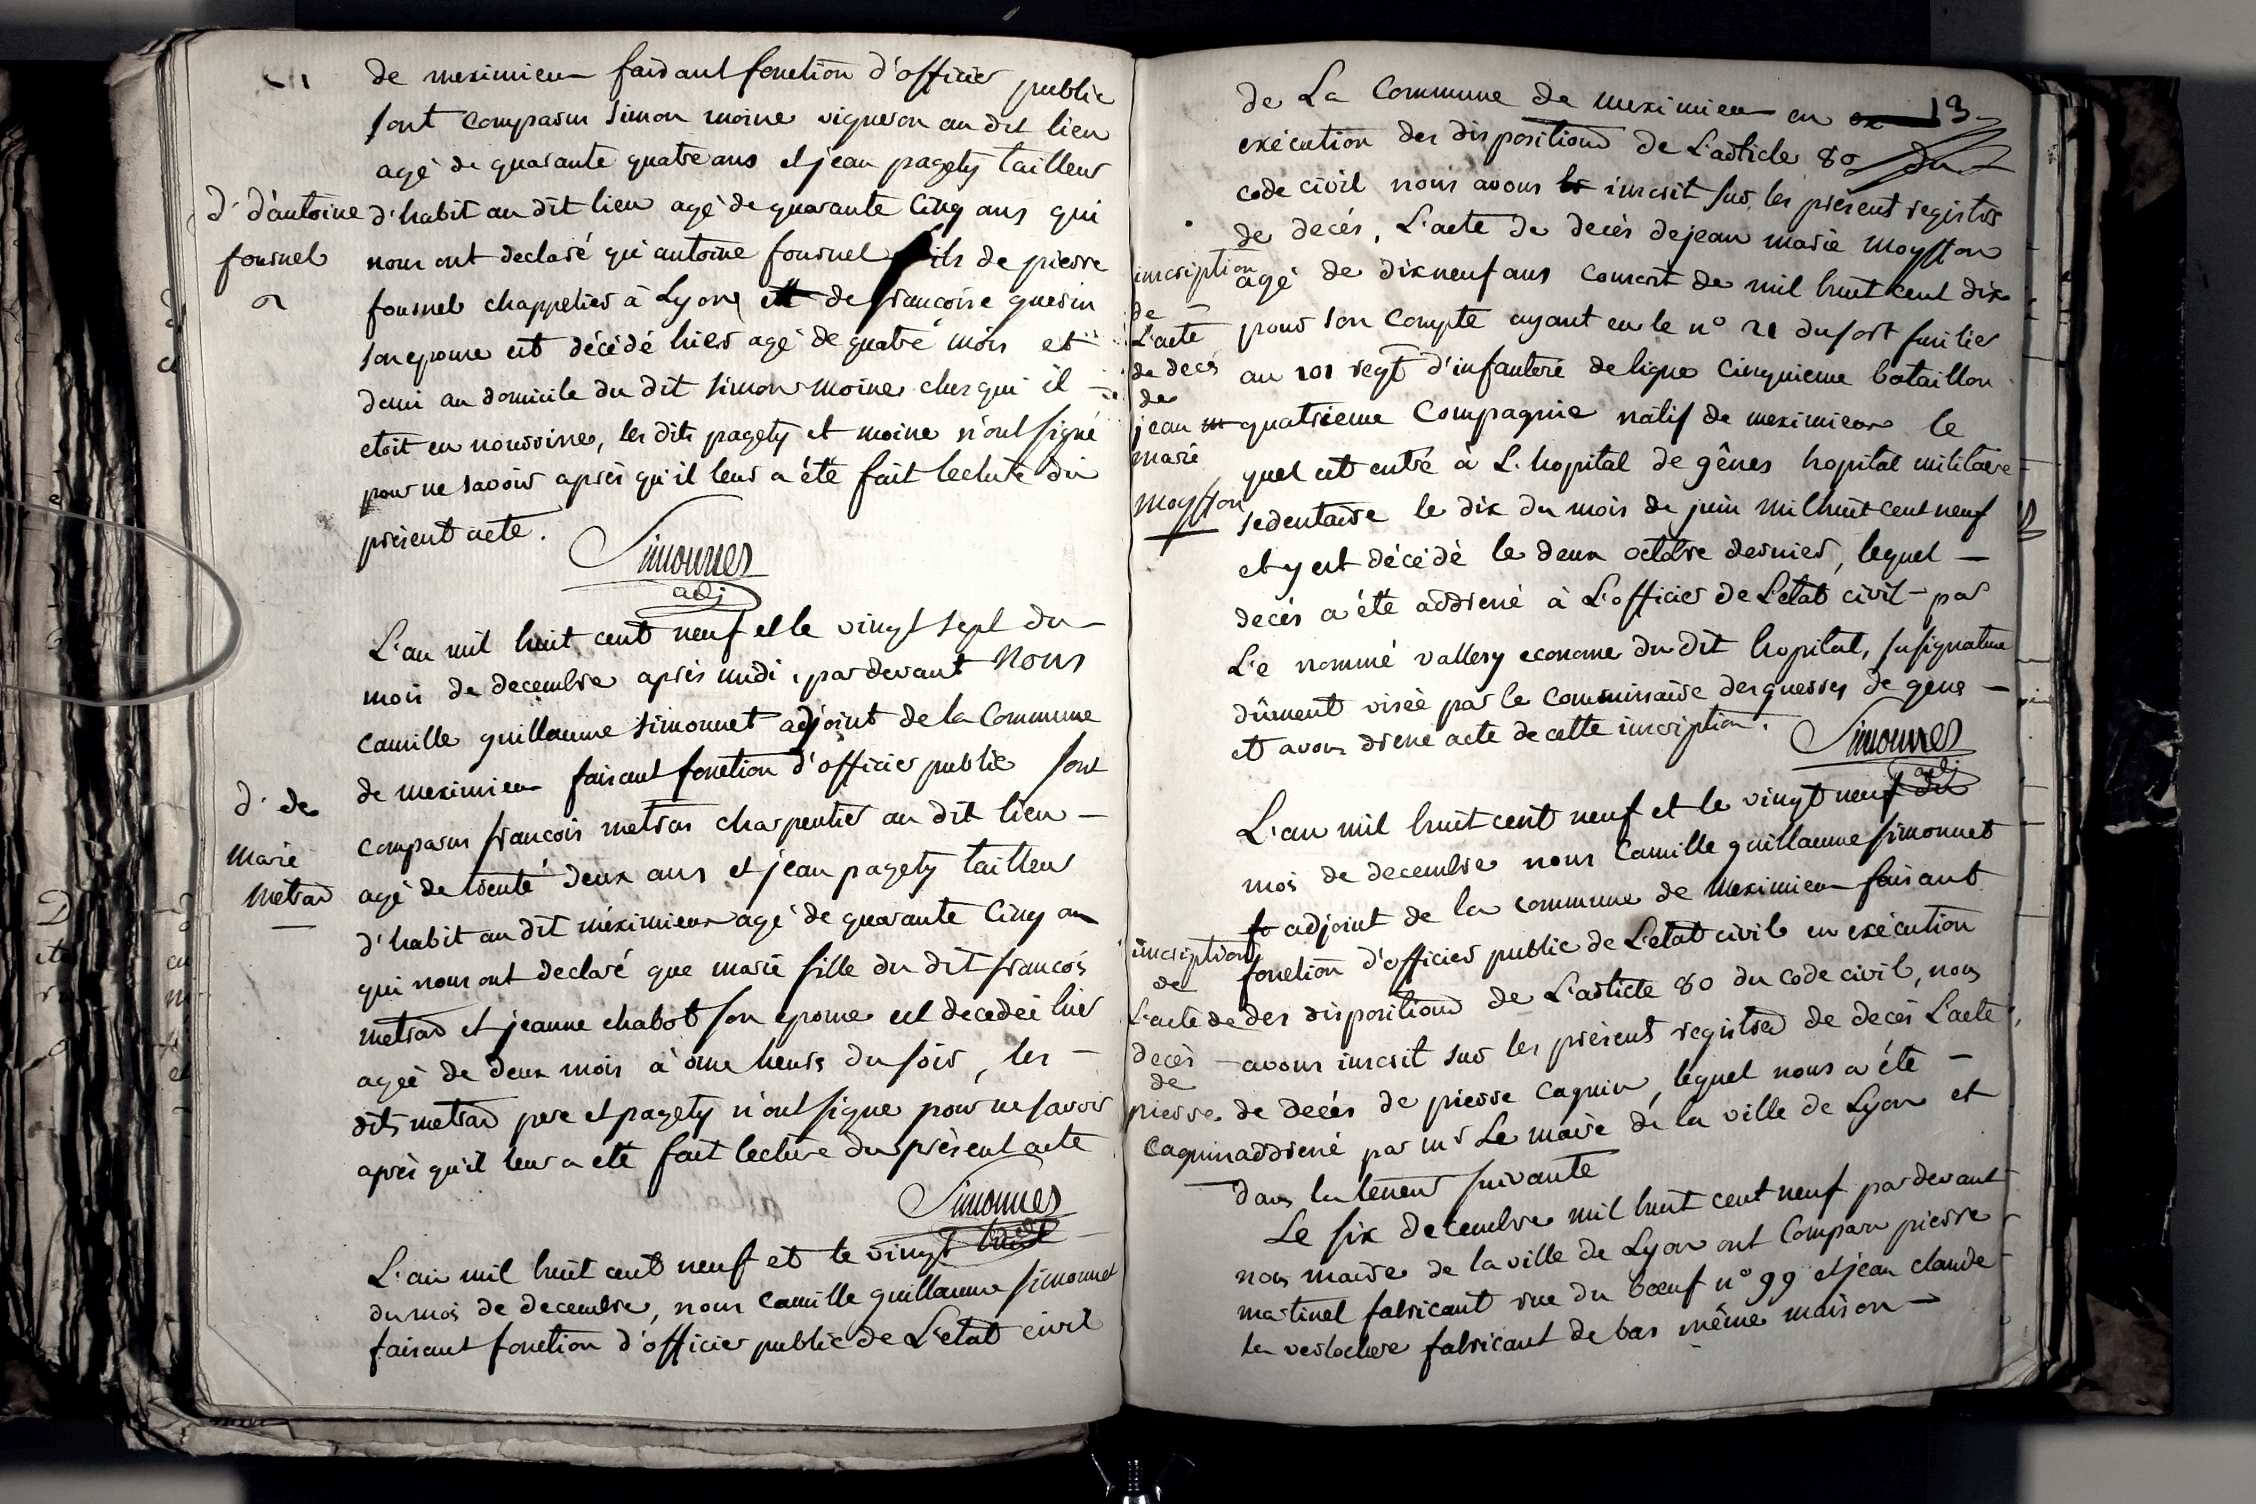 de meximieu faisant fonction d'officier public
sont comparus simon moine vigneron au dit lieu
agé de quarante quatre ans et jean pagety tailleur
d. d'antoine
fournel
d'habit au dit lieu agé de quarante cinq ans qui
nous ont declaré qu'antoine fournel fils de pierre
fournel chappelier à Lyon et de francoise guerin
son epouse est décédé hier agé de quatre mois et
demi au domicile du dit simon moine cher qui il
etoit en nourrice, les dits pagety et moine n'ont signé
pour ne savoir après qu'il leur a été fait lecture du
présent acte.
Simonnet
adj
L'an mil huit cent neuf et le vingt sept du
mois de decembre après midi, pardevant Nous
camille guillaume simonnet adjoint de la Commune
de meximieu faisant fonction d'officier public sont
d. de
marie
métras
comparus francois metras charpentier au dit lieu
agé de trente deux ans et jean pagety tailleur
d'habit au dit méximieux agé de quarante cinq an
qui nous ont declaré que marie fille du dit francois
metras et jeanne chabot son epouse est decedée hier
ageé de deux mois à onze heures du soir, les
dits metras pere et pagety n'ont signe pour ne savoir
après qu'il leur a été fait lecture du présent acte
Simonnet
adj
L'an mil huit cent neuf et le vingt huit
du mois de decembre, nous camille guillaume simonnet
faisant fonction d'officier public de L'etat civil
13
de La Commune de meximieu en
exécution des dispositions de L'article 80 du
code civil nous avons inscrit sur les présent registres
de decés, L'acte de decès de jean marie moysson
inscription
de
L'acte
de decés
de
jean
marie
moysson
agé de dix neuf ans conscrit de mil huit cent dix
pour son compte ayant eu le n° 21 du sort fusilier
au 101 regt d'infanterie de ligne cinquieme bataillon
quatrieme Compagnie natif de meximieux le
quel est entré à L'hopital de gênes hopital militaire
sedentaire le dix du mois de juin mil huit cent neuf
et y est décédé le deux octobre dernier, lequel
decés a été addressé à L'officier de L'etat civil par
Le nommé vallery econome du dit hopital, sa signature
dûment visée par le commissaire des guerres de gene
et avons dressé acte de cette inscription.
Simonnet
adj
L'an mil huit cent neuf et le vingt neuf du
mois de decembre nous Camille guillaume simonnet
adjoint de la commune de Meximieu faisant
fonction d'officier public de L'etat civil en exécution
inscription
de
L'acte de
decès
de
pierre
caquin
des dispositions de L'article 80 du code civil, nous
avons inscrit sur les présents registres de decés L'acte
de decés de pierre caquin, lequel nous a été
addressé par mr Le maire de la ville de Lyon et
dans la teneur suivante
Le six decembre mil huit cent neuf pardevant
nous maire de la ville de Lyon ont Comparu pierre
martinet fabricant rue du boeuf n° 99 et jean claude
fabricant de bas même maison